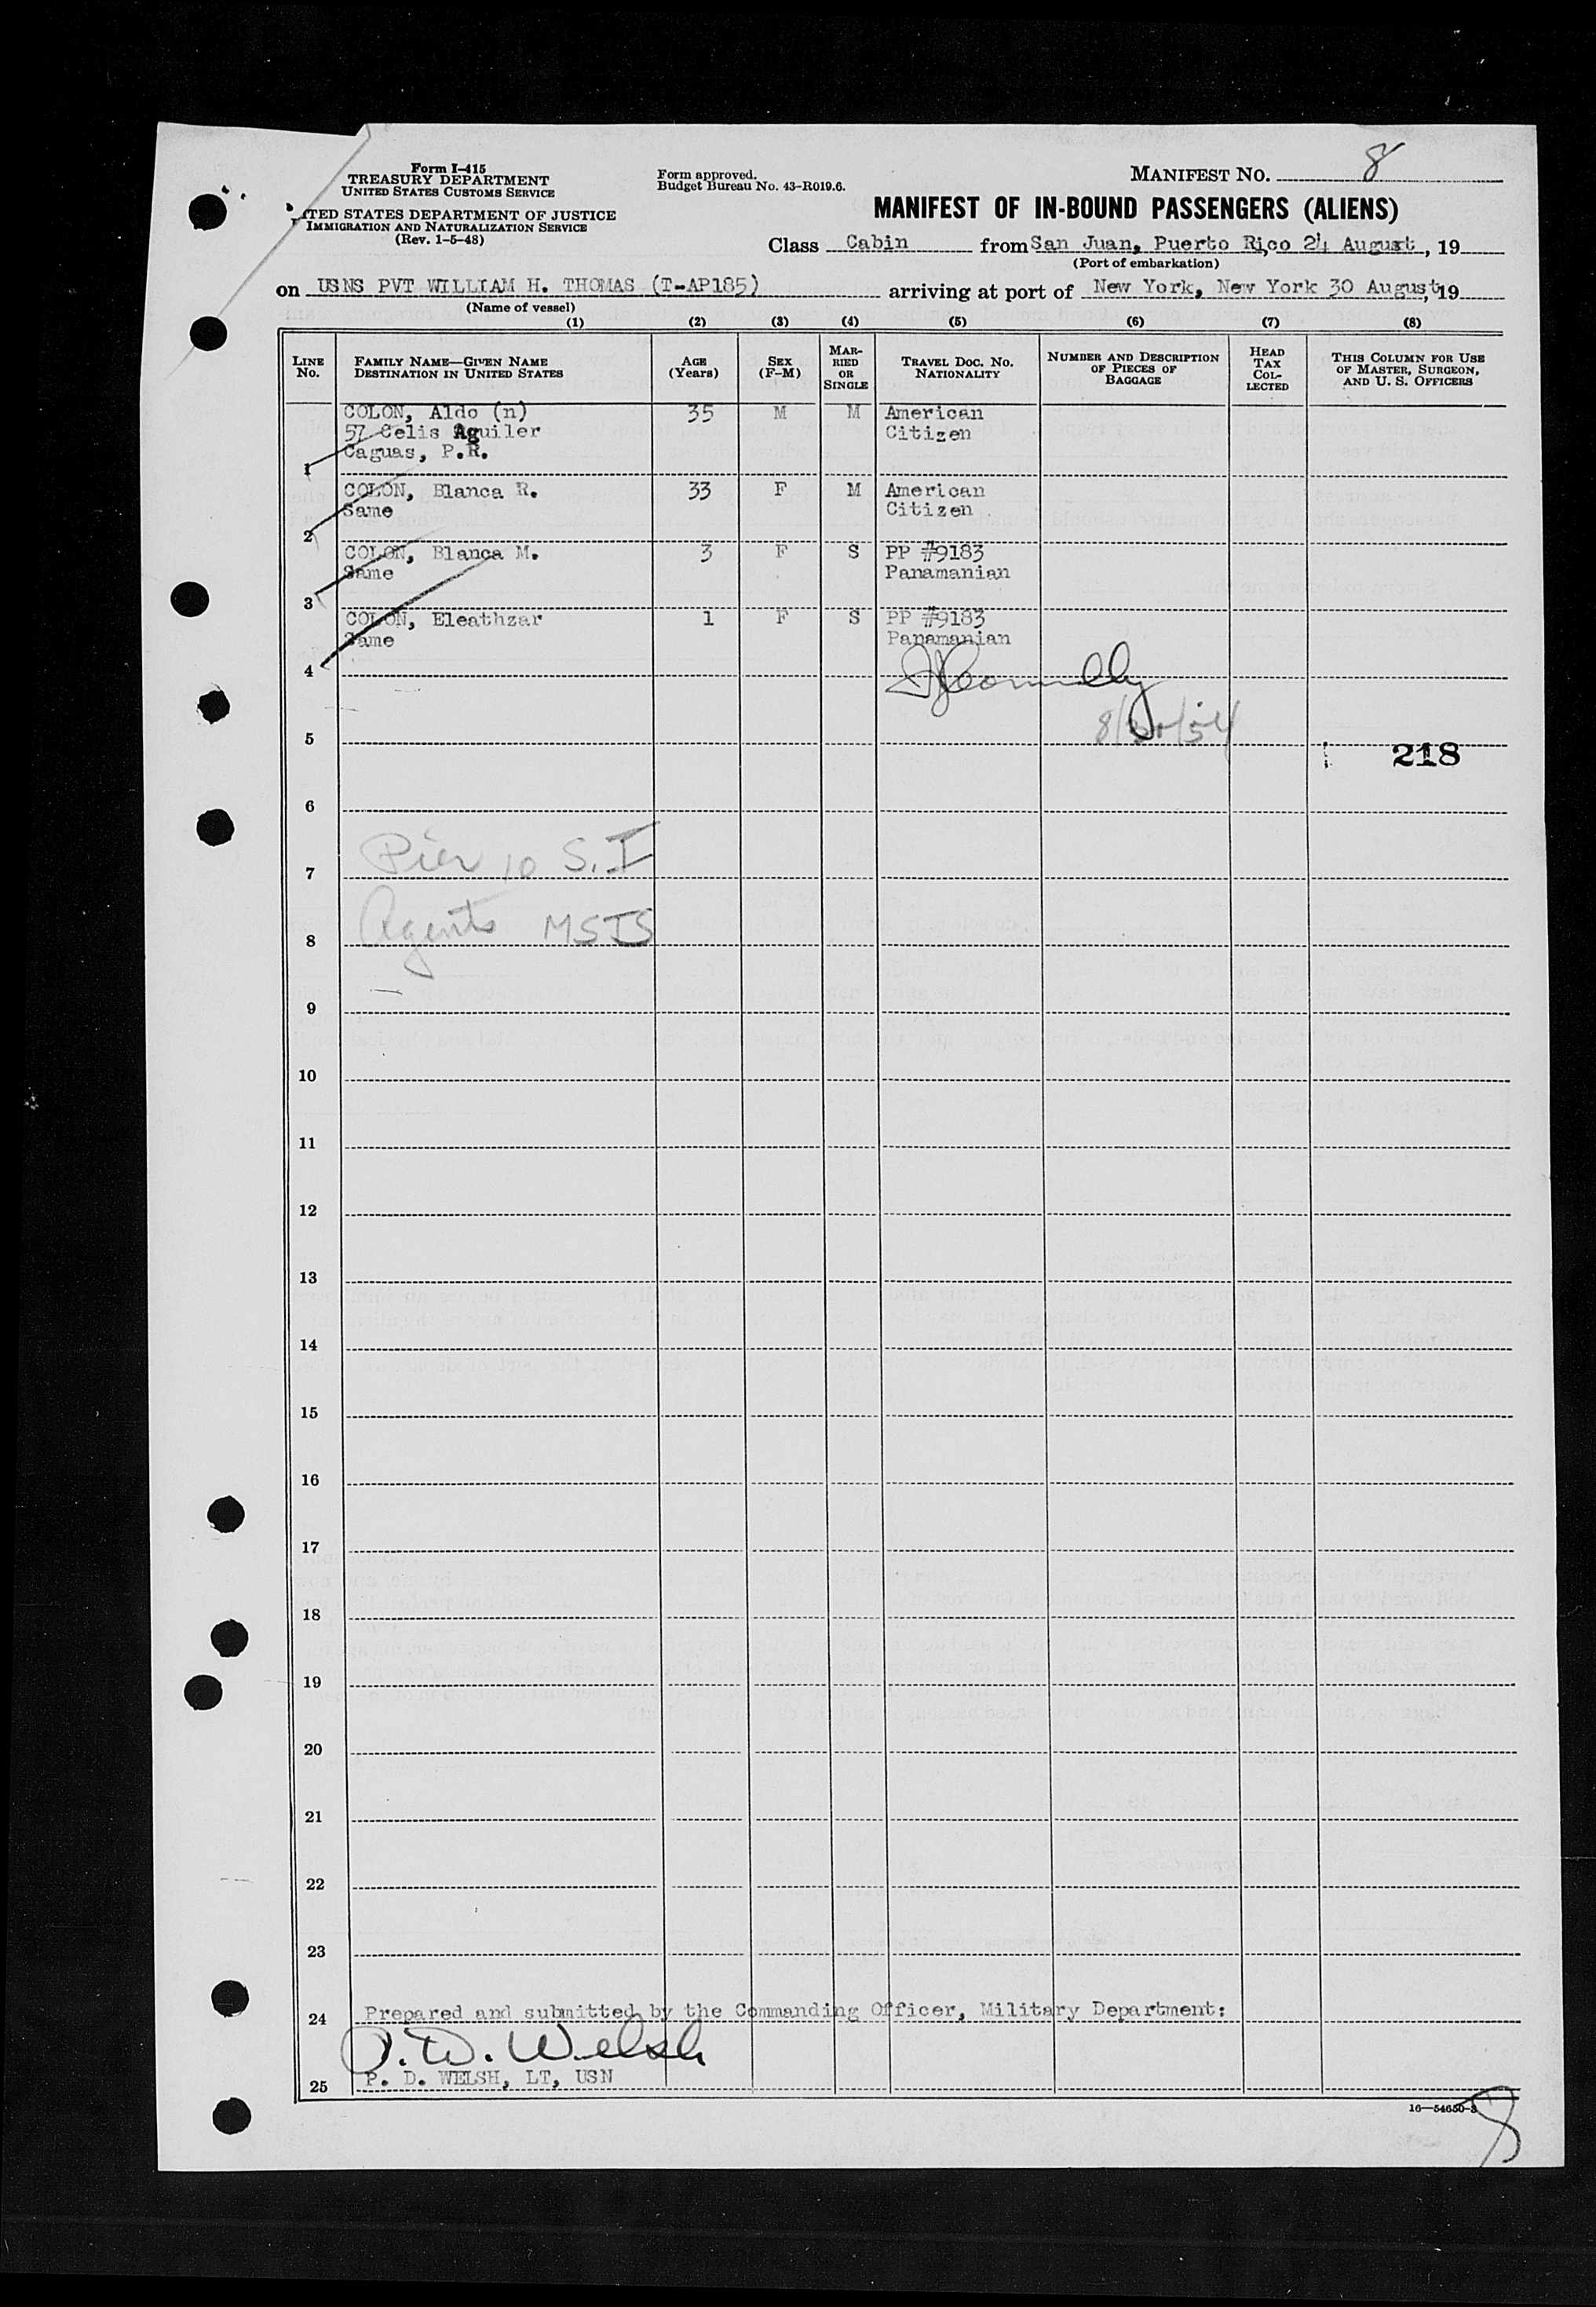 Form I-415
TREASURY DEPARTMENT
UNITED STATES CUSTOMS SERVICE
ITED STATES DEPARTMENT OF JUSTICE
IMMIGRATION AND NATURALIZATION SERVICE
(Rev. 1-5-48)
Form approved.
Budget Bureau No. 43-R019.6.
MANIFEST NO. 8
MANIFEST OF IN-BOUND PASSENGERS (ALIENS)
Class Cabin from San Juan, Puerto Rico 24 August, 19
(Port of embarkation)
on USNS PVT WILLIAM H. THOMAS (T-AP185) arriving at port of New York, New York 30 August, 19
(Name of vessel)
(1) (2) (3) (4) (5) (6) (7) (8)
LINE NO. FAMILY NAME—GIVEN NAME DESTINATION IN UNITED STATES AGE (Years) SEX (F-M) MARRIED OR SINGLE TRAVEL DOC. NO. NATIONALITY NUMBER AND DESCRIPTION OF PIECES OF BAGGAGE HEAD TAX COLLECTED THIS COLUMN FOR USE OF MASTER, SURGEON, AND U. S. OFFICERS
COLON, Aldo (n) 35 M M American
57 Celis Aguiler Citizen
Caguas, P.R.
1
COLON, Blanca R. 33 F M American
Same Citizen
2
COLON, Blanca M. 3 F S PP #9183
Same Panamanian
3
COLON, Eleathzar 1 F S PP #9183
Same Panamanian
4
Connelly
5
218
6
Pier 10 S.I
7
Agents MSTS
8
9
10
11
12
13
14
15
16
17
18
19
20
21
22
23
24 Prepared and submitted by the Commanding Officer, Military Department:
P. D. Welsh
25 P. D. WELSH, LT, USN
16—54650-3
8